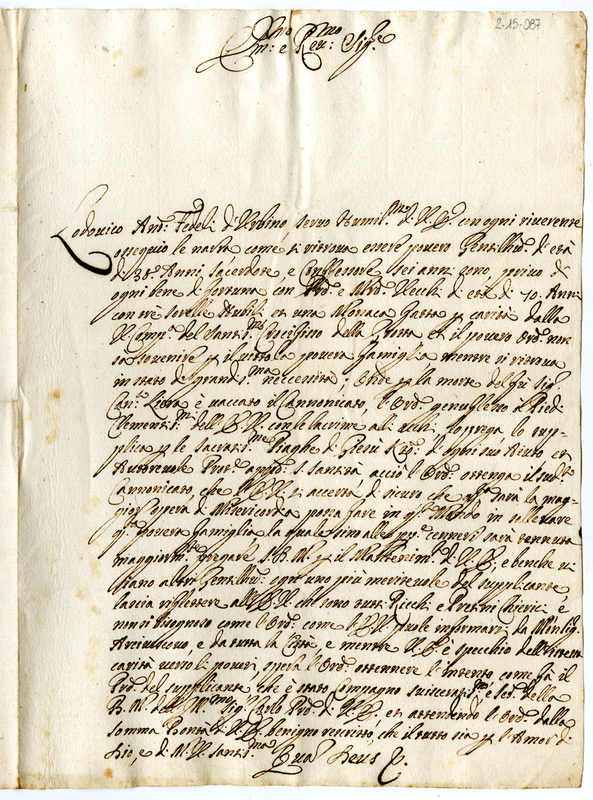 2-15-087
Em:mo e Rev:mo Sig:re
Lodovico Ant:o Fedeli d'Urbino, servo humil:mo d. V. E. con ogni riverente
ossequio le narra come si ritrova essere povero Gentilh:o d'età
di 38: Anni, sacerdote, e Confessore sei anni sono, privo di
ogni bene di fortuna con Pr̃e e Mr̃e Vecchi di età di 70. Anni
con tré sorelle Nubili et una Monaca fatta p carità dalla
V. Comp:a del Santis:mo Crocefisso della Grotta et il povero Or̃e non
sa sovenire p il vitto la povera famiglia mentre si ritrova
in stato di grandis:ma neccessità; Onde p la morte del fù Sig:r
Can:co è vaccato il Canonicato, l'Or̃e genuflesso a Piedi
Clementis:mi dell'E. V. con le lacrime alli occhi, la prega, lo sup-
plica p le Sacratis:me Piaghe di Giesù d'ogni suo Aiuto et
Autorevole Prot:e appr:o S. Santità acciò l'Or̃e ottenga il sud:o
Canonicato, che l'E. V. si accerti di sicuro che q:ta sarà la mag-
gior opera di Misericordia possa fare in q:to Mondo in sollevare
q:ta povera famiglia la quale sino alle ceneri sarà tennuta
maggiorm:te pregare S. D. M. p il Mantenim:to d. V. E.; e benche vi
siano altri Gentilh:i ogni uno più meritevole del supplicante,
lascia riflettere all'E. V. che sono tutti Ricchi e Pretini Chierici e
non si bisognosi come l'Or̃e come l'E. V. puole informarsi da Monsig:r
Arcivescovo, e da tutta la Città, e mentre V. E. è specchio dell'istessa
carità verso li poveri, spera l'Or̃e ottennere l'intento come fà il
Pr̃e del supplicante che è stato Compagno suiscerati:mo, e della
B. M. dell' Sig: Carlo Pr̃e di V. E. et attendendo l'Or̃e dalla
somma Bontà d. V. E. benigno rescritto, che il tutto sia p l'Amor di
Dio, e di M. V. Santis:ma Quam Deus &.